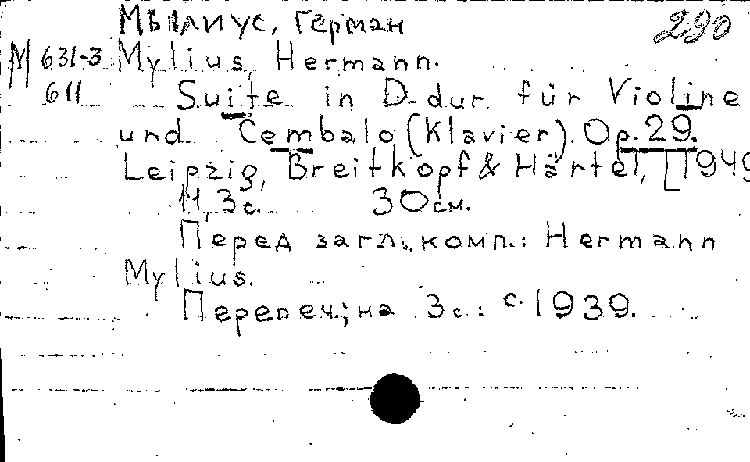 Мылиус, Герман 290
М 631-3 Mylius, Hermann.
611 Suite in D-dur für Violine
und Cembalo (Klavier). Op. 29.
Leipzig, Breitkopf & Härtel, [1949
11, 3 с. 30 см.
Перед загл. комп.: Hermann
Mylius.
Перепеч.; на 3 с.: с. 1939.